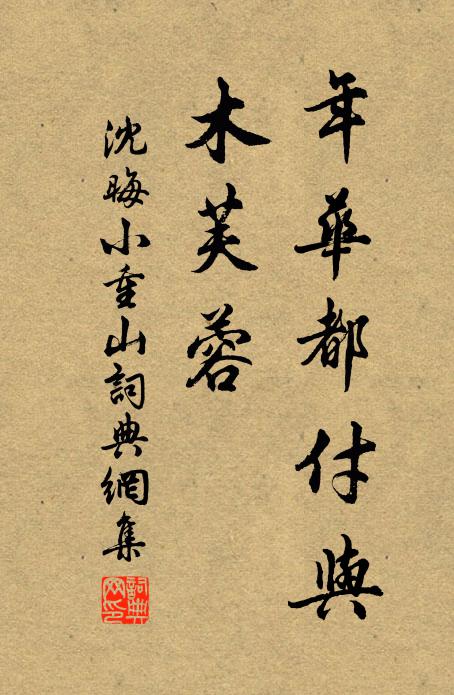 年華都付與
木芙蓉
沈晦小重山詞典網集
詞典网印